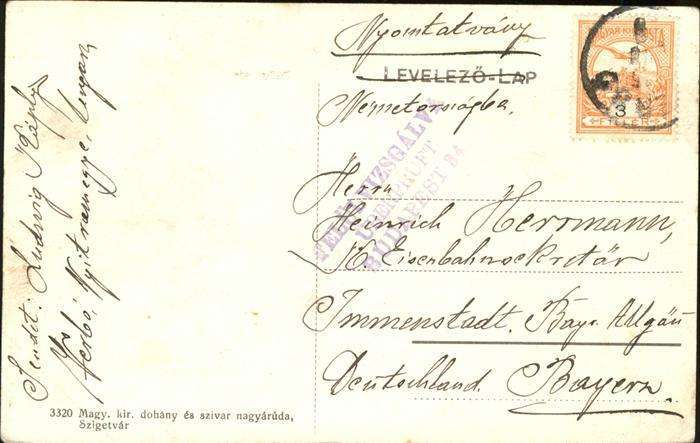 Nyomtatvány
LEVELEZŐ-LAP
Németországba.
MAGYAR KIR. POSTA
3
FILLÉR
FELÜLVIZSGÁLVA
ÜBERPRÜFT
BUDAPEST 94
Herrn
Heinrich Herrmann,
K. Eisenbahnsekretär
Immenstadt. Bayr. Allgäu
Deutschland. Bayern.
Sendet: Ludwig
Verbó, Nyitramegye, Ungarn,
3320 Magy. kir. dohány és szivar nagyárúda,
Szigetvár